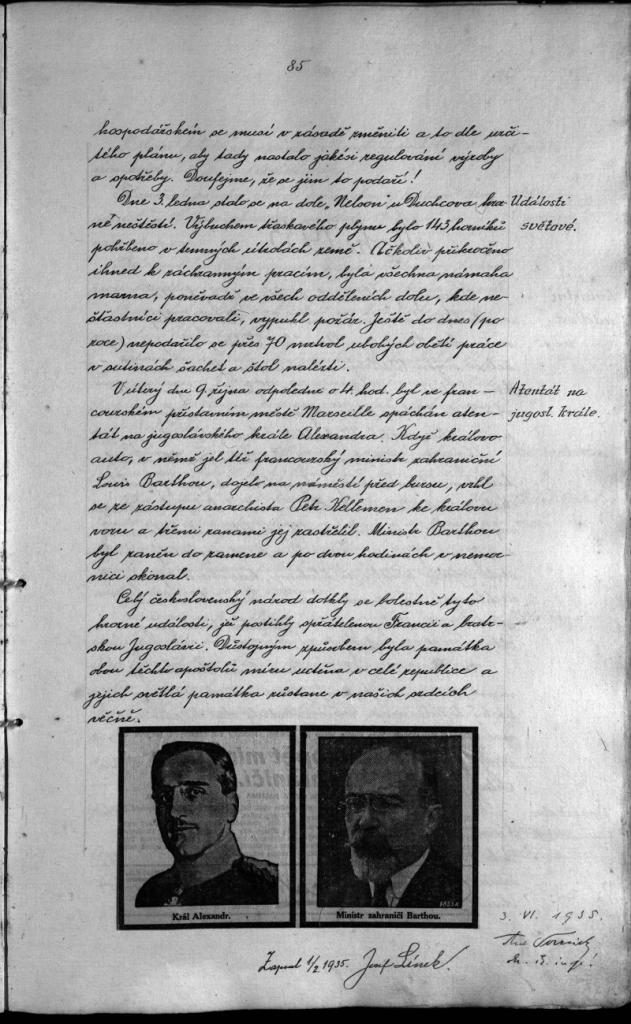 85
hospodářském se musí v zásadě změniti a to dle urči-
tého plánu, aby tady nastalo jakési regulování výroby
a spotřeby. Doufejme, že se jim to podaří!
Dne 3. ledna stalo se na dole „Nelson" u Duchcova hroz-
né neštěstí. Výbuchem třaskavého plynu bylo 143 horníků
pohřbeno v temných útrobách země. Ačkoliv přikročeno
ihned k záchranným pracím, byla všechna námaha
marna, poněvadž ve všech odděleních dolu, kde ne-
šťastníci pracovali, vypukl požár. Ještě do dnes (po
roce) nepodařilo se přes 70 mrtvol ubohých obětí práce
v sutinách šachet a štol nalézti.
Události
světové.
V úterý dne 9. října odpoledne o 4. hod. byl ve fran-
couzském přístavním městě Marseille spáchán aten-
tát na jugoslávského krále Alexandra. Když královo
auto, v němž jel též francouzský ministr zahraniční
Louis Barthou, dojelo na náměstí před bursu, vrhl
se ze zástupu anarchista Petr Kellemen ke královu
vozu a třemi ranami jej zastřelil. Ministr Barthou
byl raněn do ramene a po dvou hodinách v nemoc-
nici skonal.
Atentát na
jugosl. krále.
Celý československý národ dotkly se bolestně tyto
hrozné události, jež postihly spřátelenou Francii a bratr-
skou Jugoslávii. Důstojným způsobem byla památka
obou těchto apoštolů míru uctěna v celé republice a
jejich světlá památka zůstane v našich srdcích
věčně.
Král Alexandr.
Ministr zahraničí Barthou.
Zapsal 1/2 1935. Josef Línek.
3. VI. 1935.